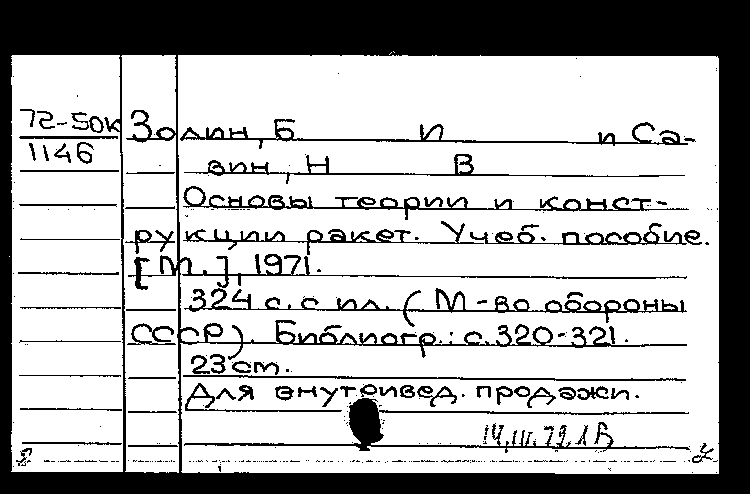 72-50к Золин, Б И и Са-
1146 вин, Н В
Основы теории и конст-
рукции ракет. Учеб. пособие.
[М.], 1971.
324 с. с ил. (М-во обороны
СССР). Библиогр.: с. 320-321.
23 см.
Для внутривед. продажи.
14.III.72.1В